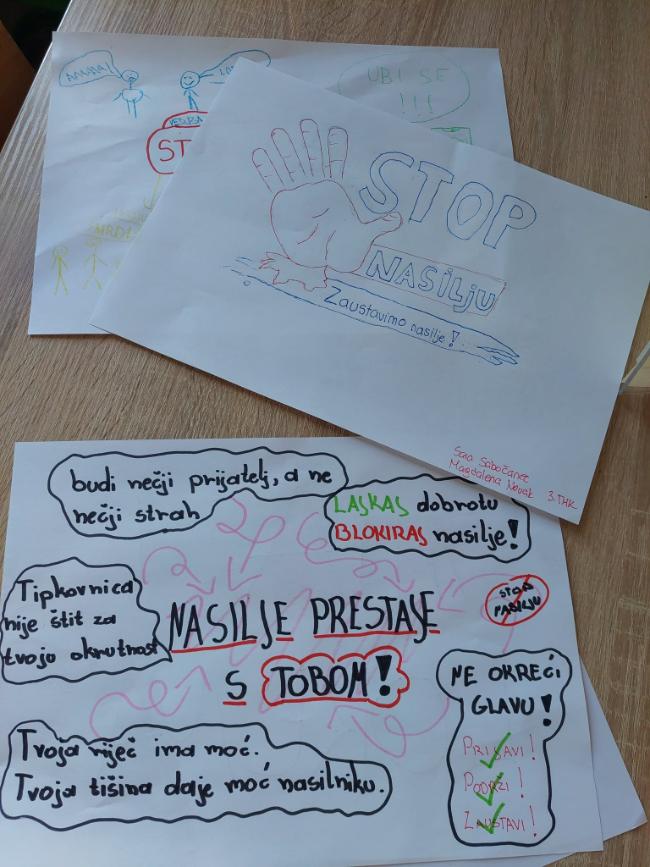 AAAAAA!
UBI SE
!!!
ST
STOP
NASILJU
Zaustavimo nasilje!
Sara Sabočanec
Magdalena Novak 3.THK
budi nečji prijatelj, a ne
nečji strah
LASKAS dobrotu
BLOKIRAS nasilje!
Tipkovnica
nije štit za
tvoju okrutnost
NASILJE PRESTAJE
S TOBOM!
STOP
NASILJU
NE OKREĆI
GLAVU!
PRIJAVI!
PODRŽI!
ZAUSTAVI!
Tvoja riječ ima moć.
Tvoja tišina daje moć nasilniku.